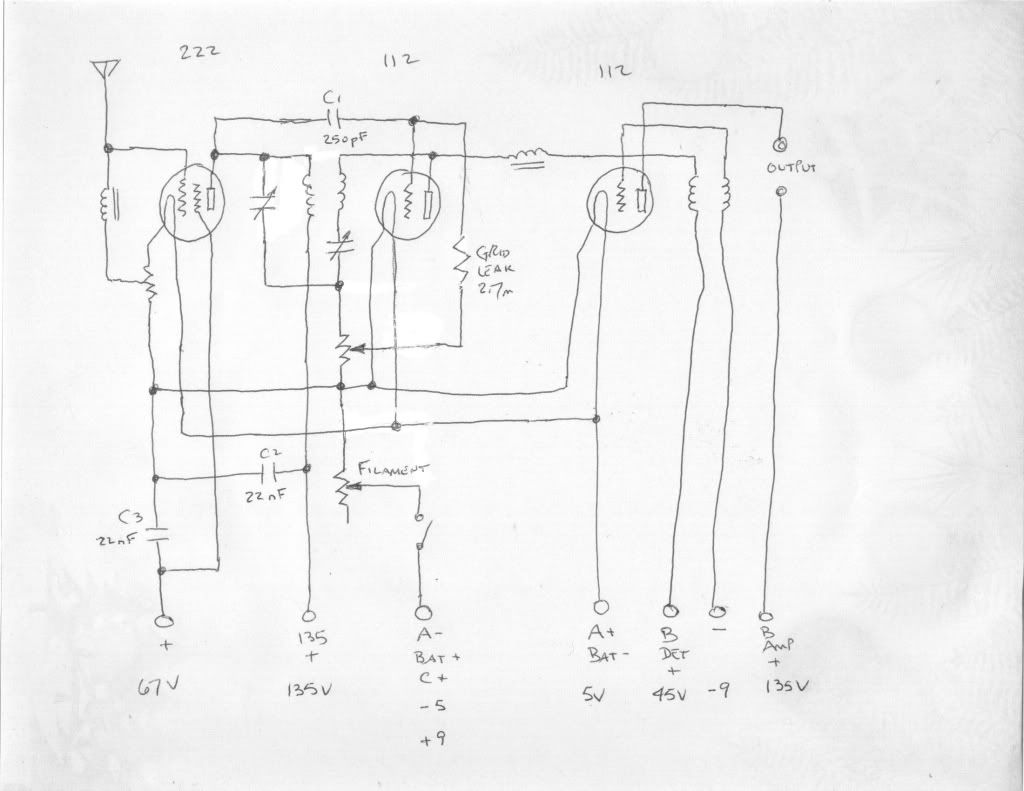 222
112
112
C1
250pF
OUTPUT
GRID
LEAK
2.7m
C2
22nF
FILAMENT
C3
22nF
+
67V
135
+
135V
A-
BAT +
C+
-5
+9
A+
BAT -
5V
B
DET
+
45V
-
-9
B
AMP
+
135V